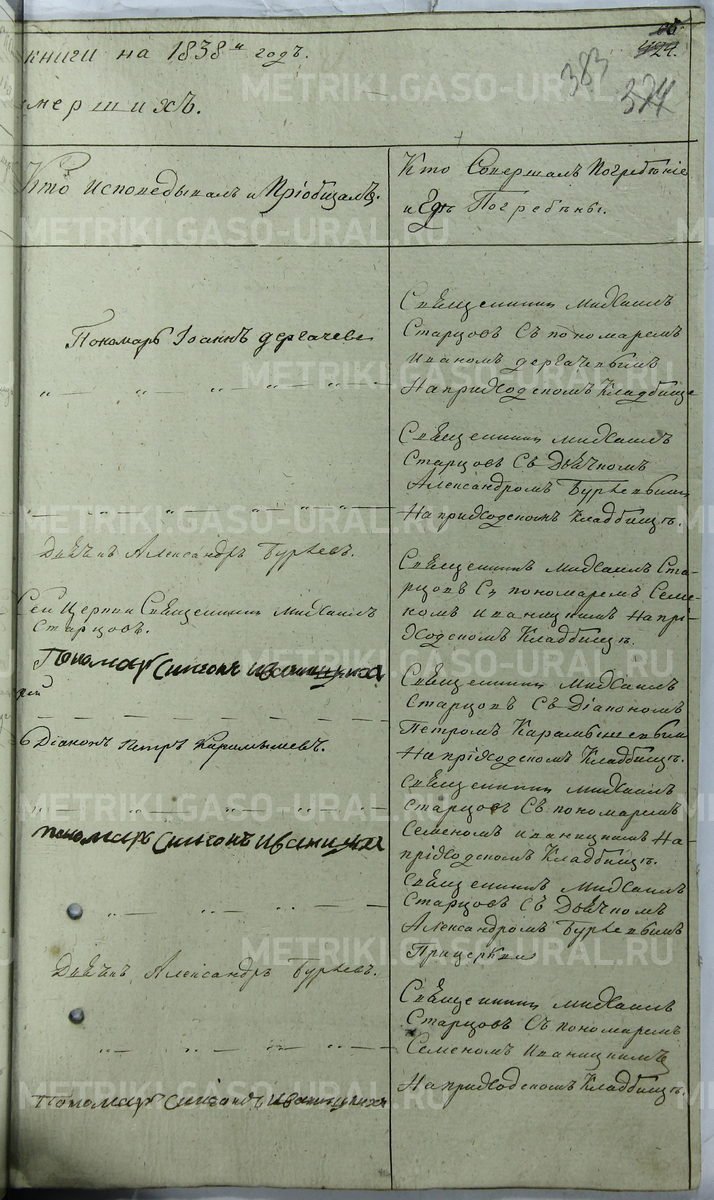 об.
424.
383
374
книги на 1838й годъ.
умершихъ.
Кто исповѣдывалъ и Пріобщалъ.
Кто Совершалъ Погребѣніе
и Гдѣ Погребѣны.
Пономарь Іоаннъ дергачевъ
„ — „ — „ — „ — „ —
Священникъ Михаилъ
Старцовъ Съ пономаремъ
Иваномъ дергачевымъ
На приходскомъ Кладбище
Священникъ михаилъ
Старцовъ Съ Дьячкомъ
Александромъ Бурѣевымъ
На приходскомъ Кладбищѣ.
„ — „ — „ — „ — „ —
Дьячкъ Александръ Бурѣевъ.
Сей Церкви Священникъ Михаилъ
Старцовъ.
Священникъ Михаилъ Стар-
цовъ Съ пономаремъ Семе-
номъ Иваницкимъ На прі-
ходскомъ Кладбищѣ.
Пономарь Симеонъ Иваницкій
Священникъ Михаилъ
Старцовъ Съ Діакономъ
Петромъ Карамышевымъ
На пріходскомъ Кладбищѣ.
Діаконъ Петръ Карамышевъ.
„ — „ — „ — „ —
Пономарь Симеонъ Иваницкій
Священникъ Михаилъ
Старцовъ Съ пономаремъ
Семеномъ Иваницкимъ На-
пріходскомъ Кладбищѣ.
Священникъ Михаилъ
Старцовъ Съ Дьячкомъ
Александромъ Бурѣевымъ
При церкви
„ — „ — „ — „ —
Дьячкъ Александръ Бурѣевъ.
Священникъ михаилъ
Старцовъ Съ пономаремъ
Семеномъ Иваницкимъ
На приходскомъ Кладбищѣ.
„ — „ — „ — „ —
Пономарь Симеонъ Иваницкій
METRIKI.GASO-URAL.RU